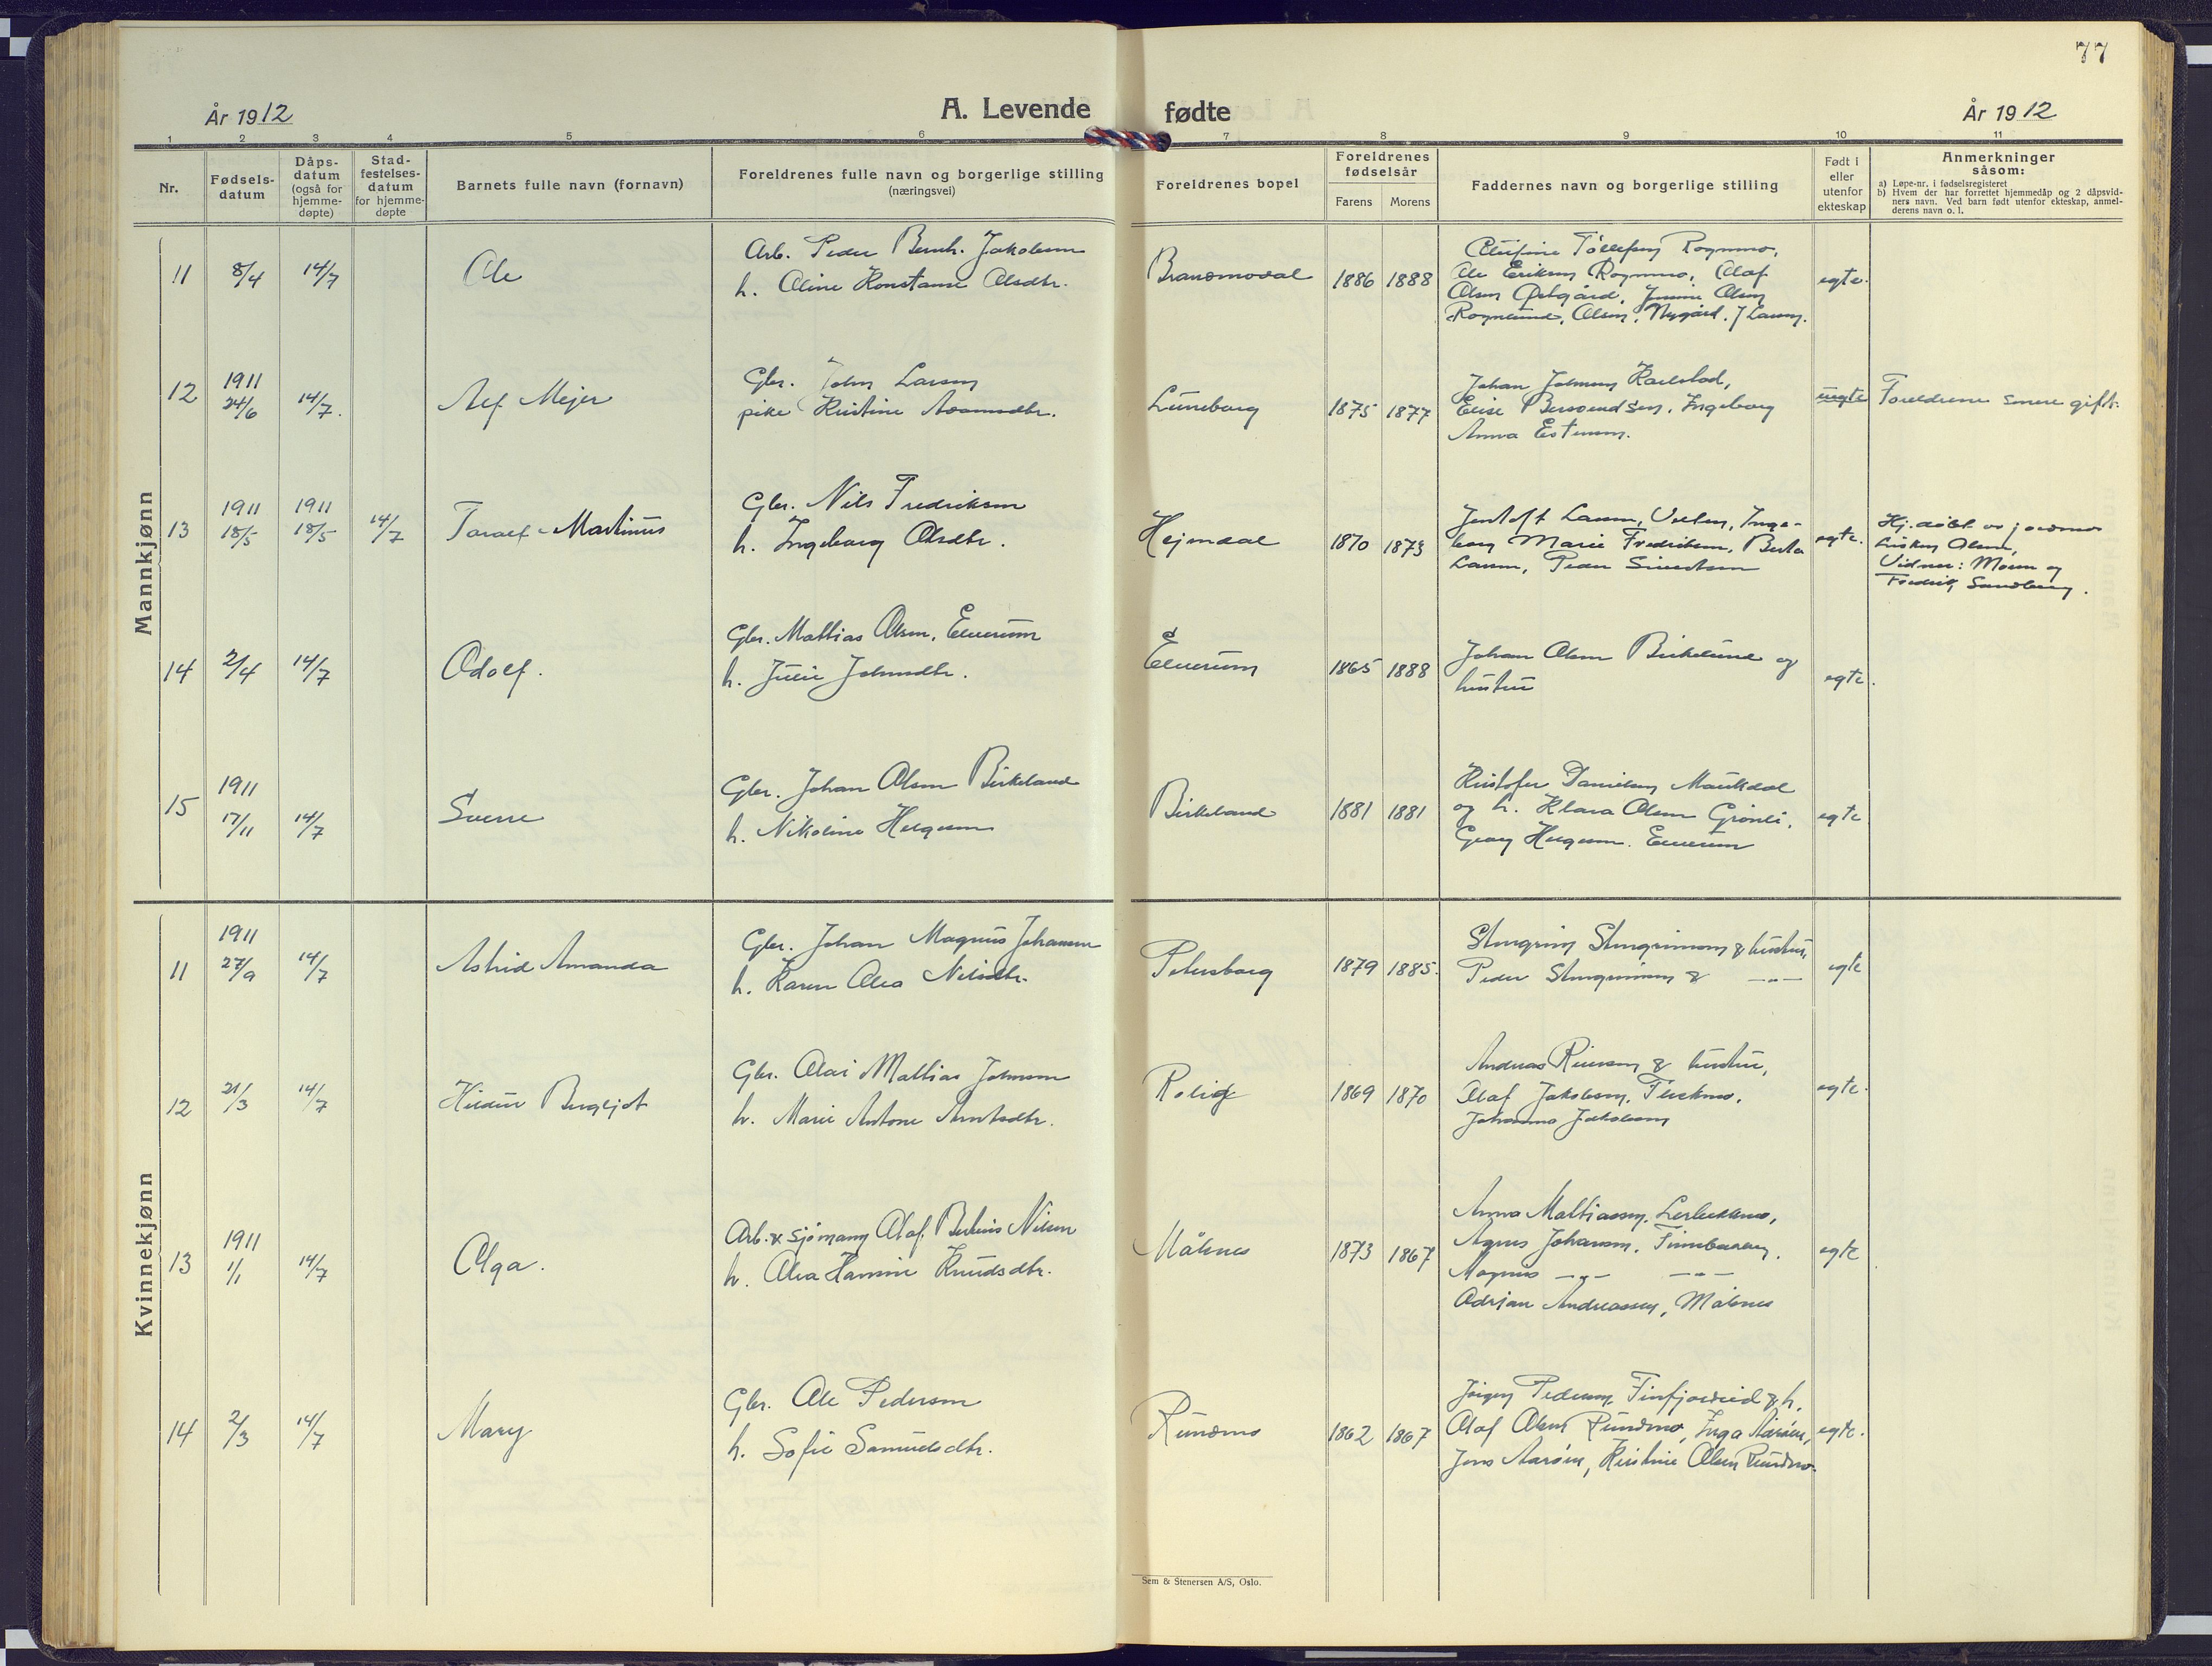 77
År 1912
A. Levende fødte
År 1912
1 2 3 4 5 6 7 8 9 10 11
Nr.
Fødsels-
datum
Dåps-
datum
(også for
hjemme-
døpte)
Stad-
festelses-
datum
for hjemme-
døpte
Barnets fulle navn (fornavn)
Foreldrenes fulle navn og borgerlige stilling
(næringsvei)
Foreldrenes bopel
Foreldrenes
fødselsår
Farens Morens
Faddernes navn og borgerlige stilling
Født i
eller
utenfor
ekteskap
Anmerkninger
såsom:
a) Løpe-nr. i fødselsregisteret
b) Hvem der har forrettet hjemmedåp og 2 dåpsvid-
ners navn. Ved barn født utenfor ekteskap, anmel-
derens navn o. l.
Mannkjønn
11 8/4 14/7 Ole
Arb. Peder Bernh. Jakobsen
h. Oline Konstanse Olsdtr.
Brandmodal 1886 1888
Tollefsen Rognmo,
Ole Eriksen Rognmo, Olaf
Olsen Østgård, Olsen
Olsen, Nygård. J Larsen.
egte.
12 1911 24/6 14/7. Alf Mejer
Gbr. John Larsen
pike Kristine
Luneborg 1875 1877
Johan Johnsen Karlstad,
Elise Berntsen, Ingeborg
Anna Estensen.
uegte
Foreldrene senere gift.
13 1911 18/5 1911 18/5 14/7 Toralf Martinus
Gbr. Nils Fredriksen
h. Ingeborg Olsdtr.
Hejmdal 1870 1873
Jentoft Larsen, Inge-
borg Marie Fredriksen, Berta
Larsen, Peder Sivertsen
egte.
Hj. døbt av jordmor
Olsen,
Vidner: Moren og
Fredrik Sandberg.
14 2/4 14/7 Odolf.
Gbr. Mattias Olsen, Elverum
h. Julie Johnsdtr.
Elverum 1865 1888
Johan Olsen Birkelund og
hustru
egte.
15 1911 17/11 14/7 Sverre
Gbr. Johan Olsen Birkeland
h. Nikoline Helgesen
Birkeland 1881 1881
Kristofer Danielsen Maukdal
og h. Klara Olsen Grønli,
Georg Helgesen. Elverum
egte
Kvinnekjønn
11 1911 27/9 14/7 Astrid Amanda
Gbr. Johan Magnus Johansen
h. Karen Olea Nilsdtr.
Petersborg 1879 1885.
Stengrim Stengrimsen & hustru,
Peder Stengrimsen & —"—
egte
12 21/3 14/7 Hildur Bergljot
Gbr. Olai Mattias Johnsen
h. Marie Antone Arntsdtr.
Rolig 1869 1870
Andreas & hustru,
Olaf Jakobsen, Fleskmo.
Johanna Jakobsen
egte.
13 1911 1/1 14/7 Olga.
Arb. & sjømann Olaf Berteus Nilsen
h. Olea Hansine Knudsdtr.
Målsnes 1873 1867
Anna Mattiassen,
Agnes Johansen,
Magnus —"— —"—
Adrian Andreassen, Målsnes
egte
14 2/3 14/7 Mary
Gbr. Ole Pedersen
h. Sofie Samuelsdtr.
Rundmo 1862 1867
Jørgen Pedersen, Finfjordeid & h.
Olaf Olsen Rundmo, Inga Aarøen,
Jens Aarøen, Kristine Olsen Rundmo.
egte.
Sem & Stenersen A/S, Oslo.